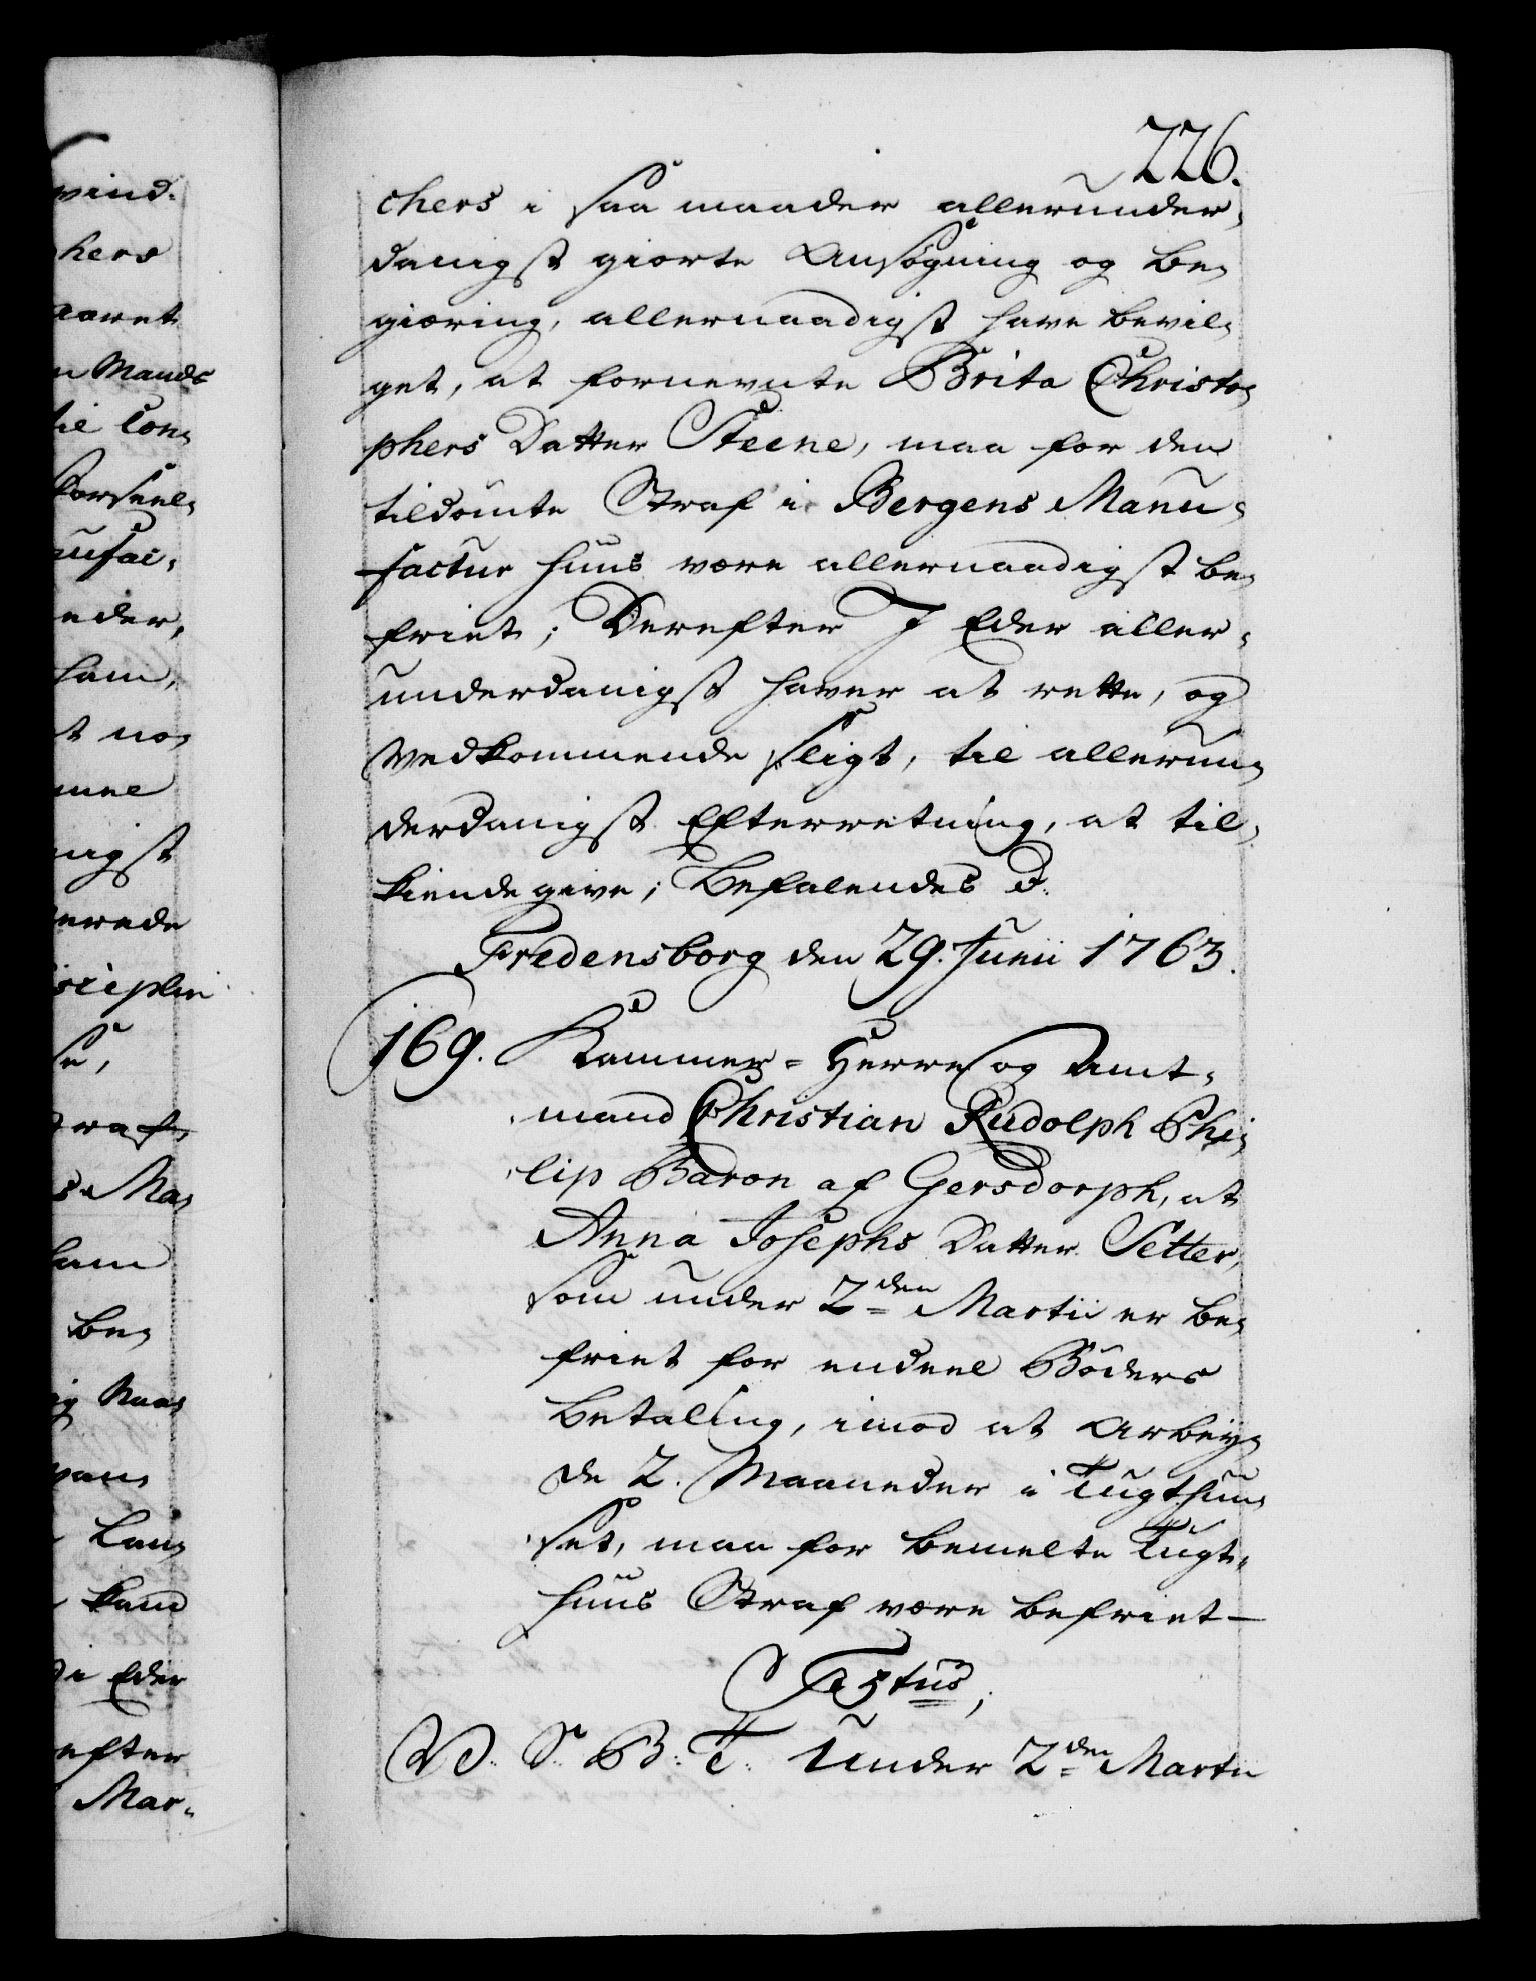 226.
chers i saa maader allerunder-
danigst giorte Ansøgning og be-
giæring, allernaadigst have bevil-
get, at fornevnte Brita Christo-
phers Datter Steene, maa for den
tildømte Straf i Bergens Manu-
factur Huus være allernaadigst be-
friet; Derefter I Eder aller-
underdanigst haver at rette, og
vedkommende sligt, til allerun-
derdanigst Efterretning, at til-
kiende give; Befalendes d.
Fredensborg den 29. Junii 1763.
169. Kammer-Herre og Amt-
mand Christian Rudolph Phi-
lip Baron af Gersdorph, at
Anna Josephs Datter Setter,
som under 2den Martii er be-
friet for endeel Bøders
Betaling, imod at Arbey-
de 2. Maaneder i Tugthuu-
set, maa for bemelte Tugt-
huus Straf være befriet —
Textus;
V. S. B. T. Under 2den Martii
vind-
hers
aaret
n Mands
til Con-
eder,
ham,
t no-
nigst
erede
disciplin
Straf,
s Ma-
ham
be-
kand
i Eder
efter
Mar-